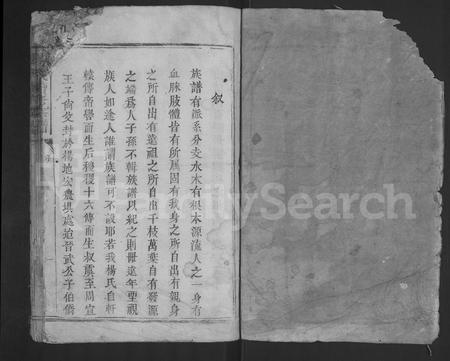 叙
族譜有派系分支水木有根本源流人之一身有
血脉肢體皆有所屬固有我身之所自出有親身
之所自出有遠祖之所自出千枝萬葉自有發源
之端為人子孫不輯族譜以紀之則世遠年湮視
族人如途人誰謂族譜可不設耶若我楊氏自軒
轅傳嚳而生后稷稷十六傳而生叔虞至周宣
王子尚父封於楊地 晉武公子伯僑
FamilySearch